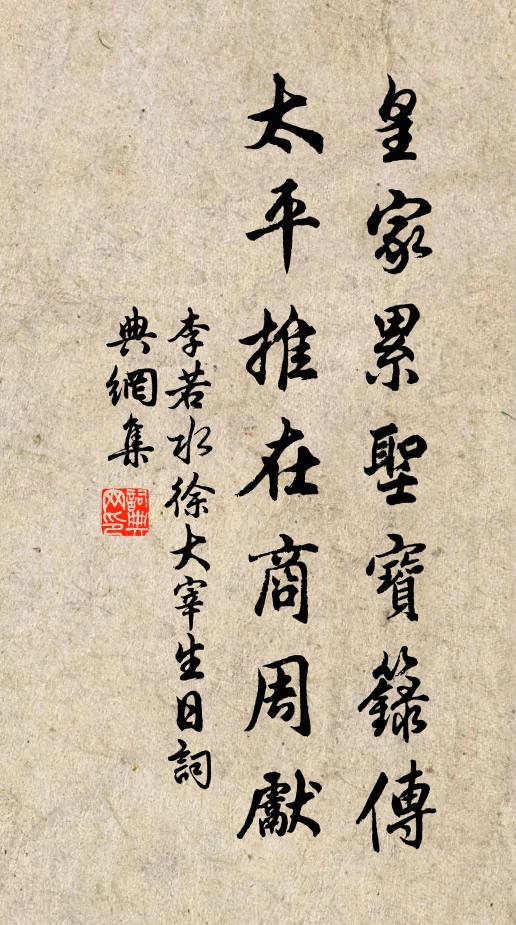 皇家累聖寶籙傳
太平推在商周獻
李若水徐大宰生日詞
典網集
詞典网印